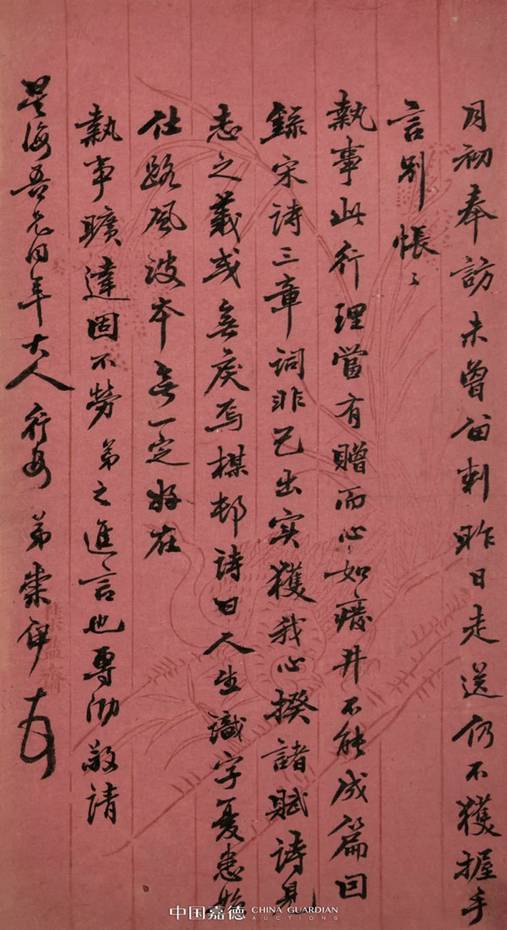 月初奉訪未曾留刺昨日走送仍不獲握手
言別悵〻
執事此行理當有贈而心如廢井不能成篇回
錄宋詩三章詞非己出实獲我心揆諸賦詩見
志之義或無戾焉楳邨詩曰人生識字憂患始
仕路風波本無一定好在
執事曠達固不勞弟之進言也專泐敬請
星海吾兄同年大人行安 弟崇伊
中国嘉德 CHINA GUARDIAN AUCTIONS